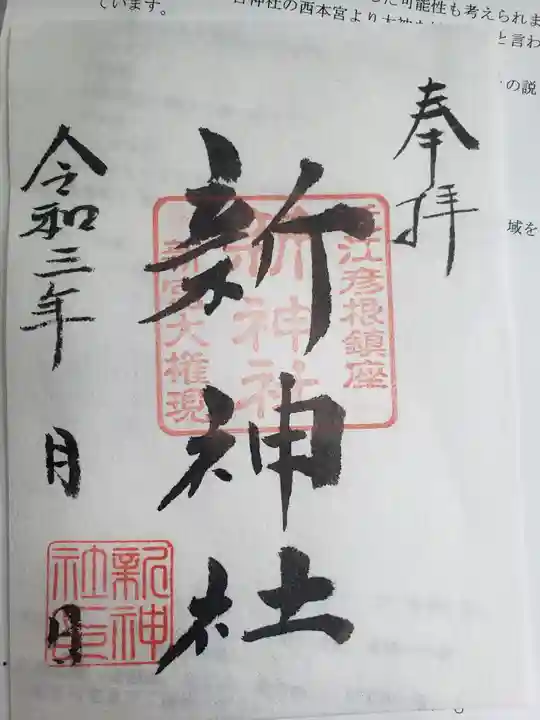 ています。
西本宮より
可能性も考えられま
と言わ
の説
域を
奉拝
江彦根鎮座
新神社
新宮大権現
新神社
令和三年 月 日
新神社